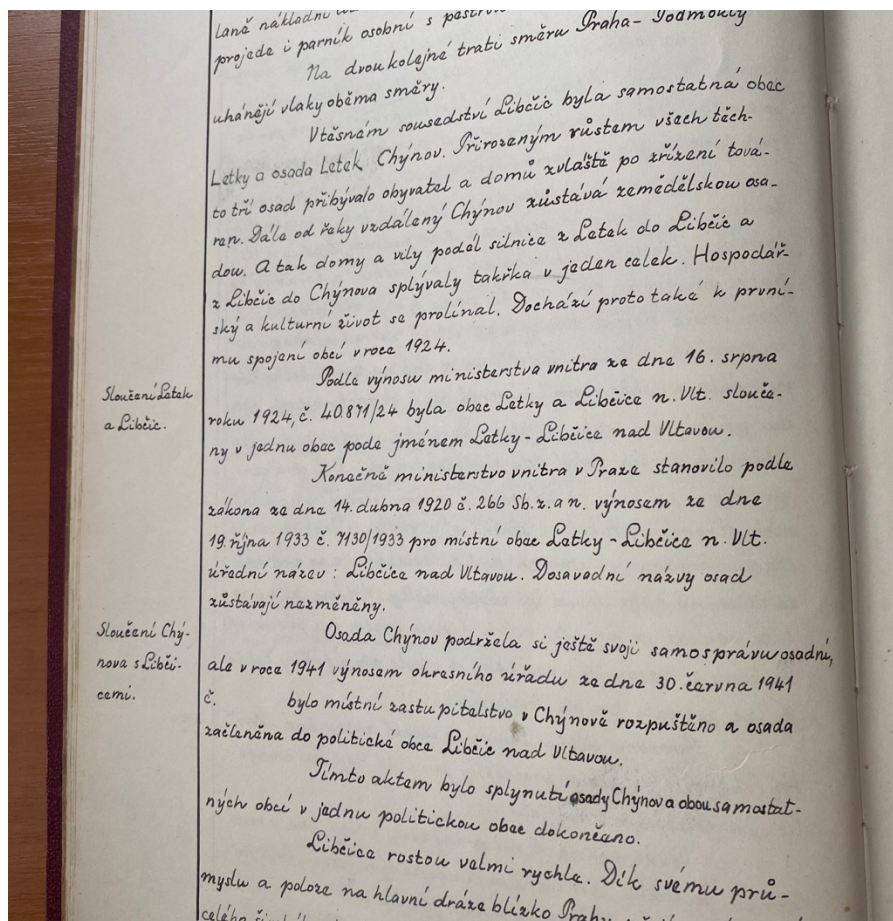 laně nákladní
projede i parník osobní s pestrým
Na dvoukolejné trati směru Praha - Podmokly
uhánějí vlaky oběma směry.
V těsném sousedství Libčic byla samostatná obec
Letky a osada Letek Chýnov. Přirozeným růstem všech těch-
to tří osad přibývalo obyvatel a domů zvláště po zřízení tová-
ren. Dále od řeky vzdálený Chýnov zůstává zemědělskou osa-
dou. A tak domy a vily podél silnice z Letek do Libčic a
z Libčic do Chýnova splývaly takřka v jeden celek. Hospodář-
ský a kulturní život se prolínal. Dochází proto také k první-
mu spojení obcí v roce 1924.
Sloučení Letek
a Libčic.
Podle výnosu ministerstva vnitra ze dne 16. srpna
roku 1924, č. 40.871/24 byla obec Letky a Libčice n. Vlt. slouče-
ny v jednu obec pode jménem Letky - Libčice nad Vltavou.
Konečně ministerstvo vnitra v Praze stanovilo podle
zákona ze dne 14. dubna 1920 č. 266 Sb. z. a n. výnosem ze dne
19. října 1933 č. 7130/1933 pro místní obec Letky - Libčice n. Vlt.
úřední název : Libčice nad Vltavou. Dosavadní názvy osad
zůstávají nezměněny.
Sloučení Chý-
nova s Libči-
cemi.
Osada Chýnov podržela si ještě svoji samosprávu osadní,
ale v roce 1941 výnosem okresního úřadu ze dne 30. června 1941
č. bylo místní zastupitelstvo v Chýnově rozpuštěno a osada
začleněna do politické obce Libčic nad Vltavou.
Tímto aktem bylo splynutí osady Chýnov a obou samostat-
ných obcí v jednu politickou obec dokončeno.
Libčice rostou velmi rychle. Dík svému prů-
myslu a poloze na hlavní dráze blízko Prahy
celého